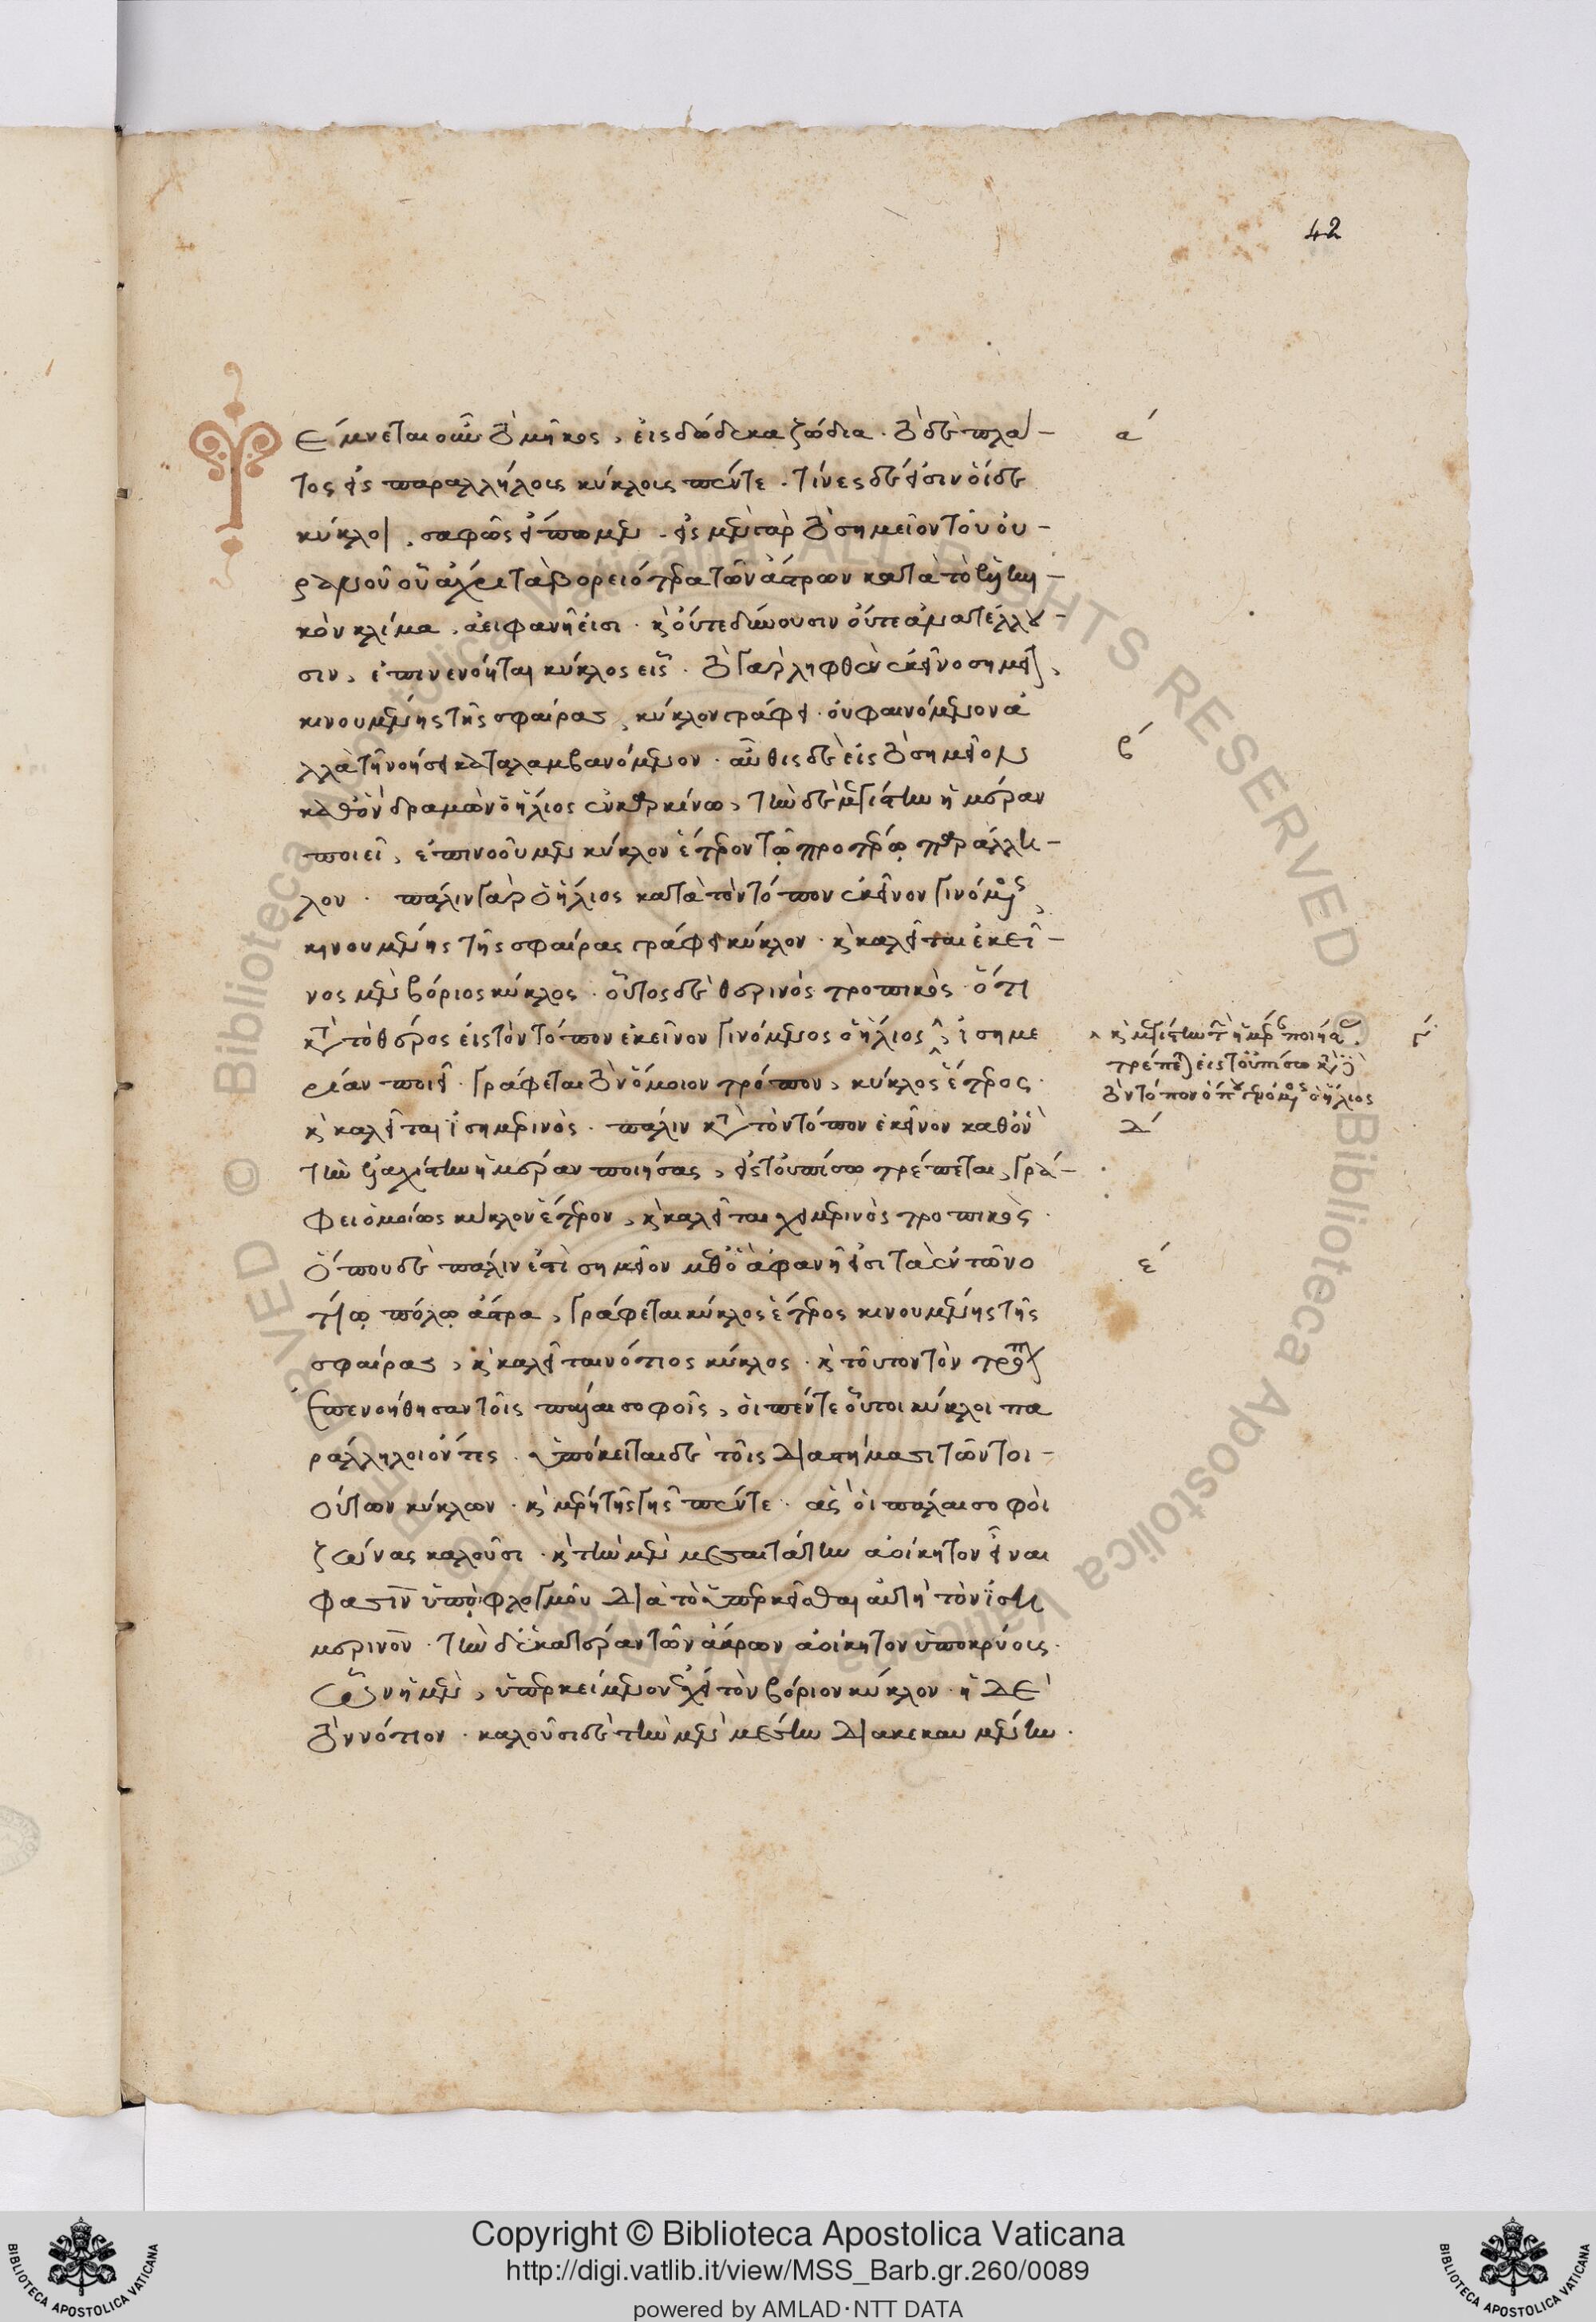 42
Τέμνεται οὖν τὸ μῆκος, εἰς δώδεκα ζώδια. τὸ δὲ πλά-
τος εἰς παραλλήλοις κύκλοις πέντε. τίνες δὲ εἰσιν οἵδε
κύκλοι, σαφῶς εἴπωμεν. εἰς μὲν γὰρ τὸ σημεῖον τοῦ οὐ-
ρανοῦ οὗ ἄχρι τὰ βορειότερα τῶν ἄστρων κατὰ τὸ
κὸν κλίμα, ἀειφανῆ εἰσι. κ οὔτε δύνουσιν οὔτε ἀνατέλλου-
σιν, ἐπινενόηται κύκλος εἷς. τὸ γὰρ ληφθὲν ἐκεῖνο σημεῖον,
κινουμένης τῆς σφαίρας, κύκλον γράφει. οὐ φαινόμενον ἀ
λλὰ τῇ νοήσει καταλαμβανόμενον. αὖθις δὲ εἰς τὸ σημεῖον
καθ' ὃν δραμὼν ὁ ἥλιος ἐν καρκίνω, τὴν δὲ μεγίστην ἡμέραν
ποιεῖ, ἐπινοοῦμεν κύκλον ἕτερον τῷ προτέρῳ παράλλη-
λον. πάλιν γὰρ ὁ ἥλιος κατὰ τὸν τόπον ἐκεῖνον γινόμενος,
κηνουμένης τῆς σφαίρας γράφει κύκλον. κ καλεῖται ἐκεῖ-
νος μὲν βόριος κύκλος. οὗτος δὲ θερινὸς τροπικὸς. ὅτι
κατὰ τὸ θέρος εἰς τὸν τόπον ἐκεῖνον γινόμενος ὁ ἥλιος, ἰσημε
ρίαν ποιεῖ. γράφεται τὸν ὅμοιον τρόπον, κύκλος ἕτερος.
κ καλεῖται ἰσημερινὸς. πάλιν κατὰ τὸν τόπον ἐκεῖνον καθ' ὃν
τὴν ἐλαχίστην ἡμέραν ποιήσας, εἰς τοὐπίσω τρέπεται, γρά-
φει ὁμοίως κύκλον ἕτερον, κ καλεῖται χειμερινὸς τροπικὸς.
ὅπου δὲ πάλιν ἐπὶ σημεῖον μεθ' ὃ ἀφανῆ εἰσι τὰ ἐν τῶ νο
τίῳ πόλῳ ἄστρα, γράφεται κύκλος ἕτερος κινουμένης τῆς
σφαίρας, κ καλεῖται νότιος κύκλος. κ τοῦτον τὸν τρόπον
ἐπενοήθησαν τοῖς πάλαι σοφοῖς, οἱ πέντε οὗτοι κύκλοι πα
ράλληλοι ὄντες. ὑπόκειται δὲ τοῖς διαστήμασι τῶν τοι-
ούτων κύκλων. κ μέρη τῆς γῆς πέντε. ἃς οἱ πάλαι σοφοὶ
ζώνας καλοῦσι. κ τὴν μὲν μεσαιτάτην ἀοίκητον εἶναι
φασὶν ὑπὸ φλογμοῦ διὰ τὸ ὑπερκεῖσθαι αὐτῇ τὸν ἰση
μερινὸν. τὴν δ' ἑκατέραν τῶν ἄκρων ἀοίκητον ὑπὸ κρύοις.
ὧν ἡ μὲν, ὑπερκείμενον ἔχει τὸν βόριον κύκλον. ἡ δὲ
τὸν νότιον. καλοῦσι δὲ τὴν μὲν μέσην διακεκαυμένην.
α´
β´
κ μεγίστην τὴν ἡμέραν ποιήσας γ´
τρέπεται εἰς τοὐπίσω
τὸν τόπον ὅπου γενόμενος ὁ ἥλιος
δ´
ε´
© Biblioteca Apostolica Vaticana ALL RIGHTS RESERVED
Copyright © Biblioteca Apostolica Vaticana
http://digi.vatlib.it/view/MSS_Barb.gr.260/0089
powered by AMLAD·NTT DATA
BIBLIOTECA APOSTOLICA VATICANA
BIBLIOTECA APOSTOLICA VATICANA